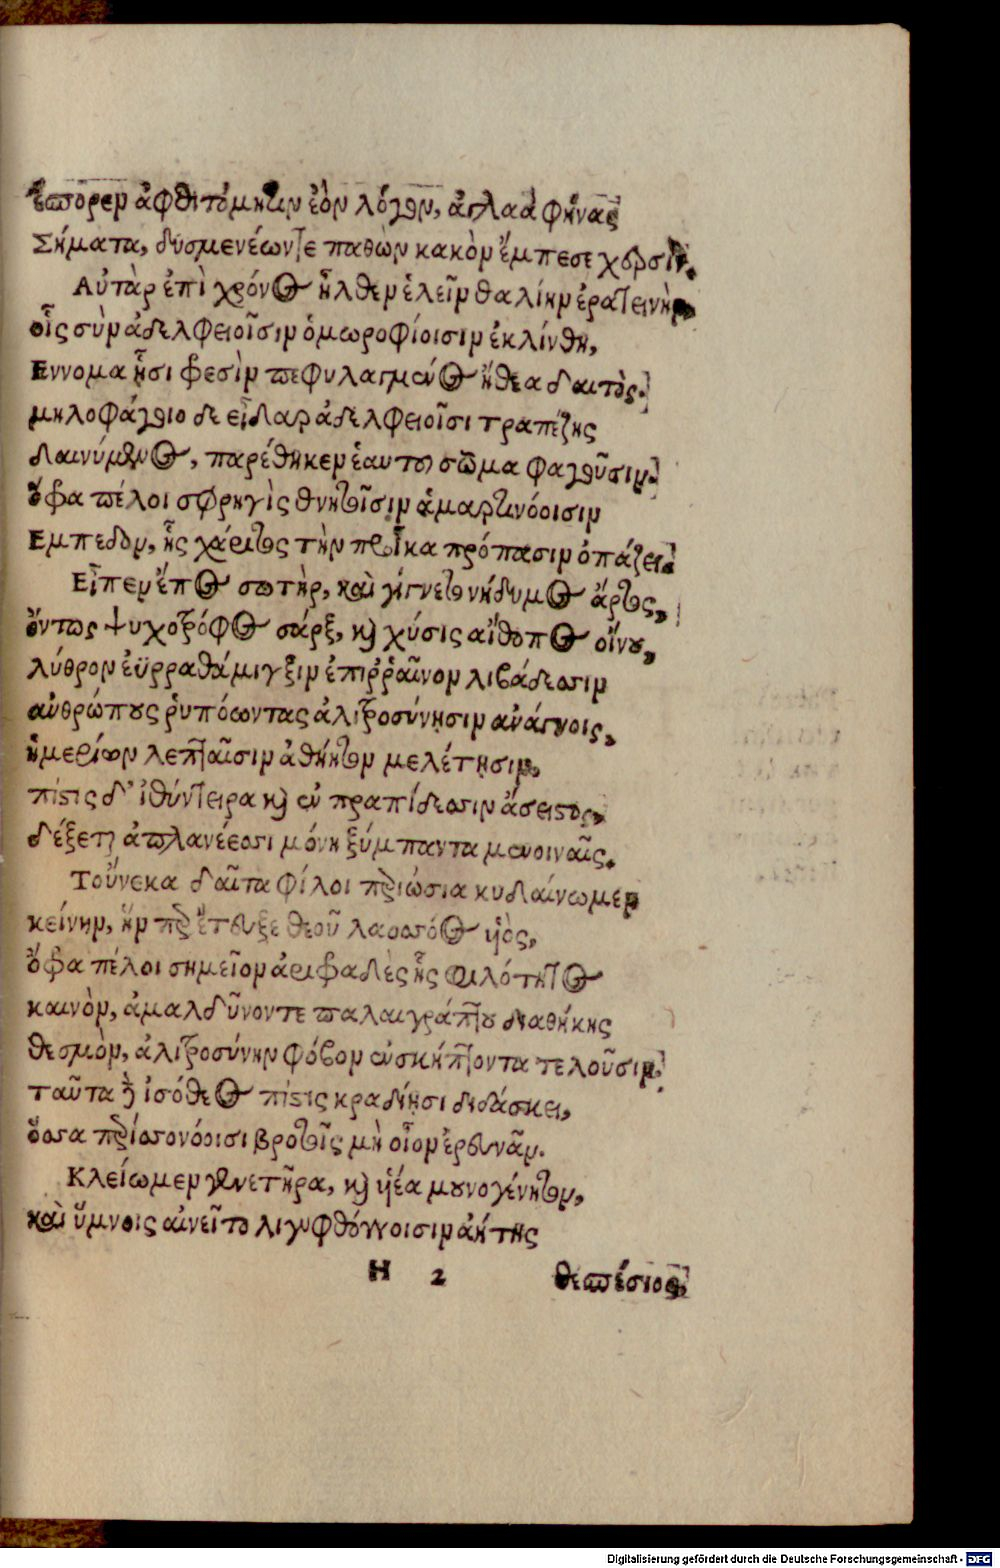 ἔσπορεν ἀφθιτόμητιν ἑὸν λόγον, ἀγλαὰ φήνας
Σήματα, δυσμενέωντε παθὼν κακὸν ἔμπεσε χερσίν.
Αὐτὰρ ἐπὶ χρόνος ἦλθεν ἑλεῖν θαλίην ἐρατεινὴν
οἷς σὺν ἀδελφειοῖσιν ὁμωροφίοισιν ἐκλίνθη,
Εννομα ᾗσι φρεσὶν πεφυλαγμένος ἤθεα δαιτὸς.
μηλοφάγοιο δε εἶδαρ ἀδελφειοῖσι τραπέζης
δαινύμενος, παρέθηκεν ἑαυτοῦ σῶμα φαγοῦσιν.
ὄφρα πέλοι σφρηγὶς θνητοῖσιν ἁμαρτινόοισιν
Εμπεδον, ἧς χάριτος τὴν προῖκα πρόπασιν ὀπάζει.
Εἶπεν ἔπος σωτὴρ, καὶ γίγνετο νήδυμος ἄρτος,
ὄντως ψυχοτρόφος σάρξ, καὶ χύσις αἴθοπος οἴνου,
λύθρον ἐϋρραθάμιγξιν ἐπιῤῥαῖνον λιβάδεσσιν
ἀνθρώπους ῥυπόωντας ἀλιτροσύνησιν ἀνάγνοις,
ἡμερίων λεπταῖσιν ἀθήητον μελέτησιν,
πίστις δ' ἰθύντειρα καὶ ἐν πραπίδεσσιν ἄσειστος,
δέξεται ἀπλανέεσσι μόνη ξύμπαντα μενοιναῖς.
Τοὔνεκα δαῖτα φίλοι περιώσια κυδαίνωμεν
κείνην, ἥν περ ἔτευξε θεοῦ λαοσσόος υἱὸς,
ὄφρα πέλοι σημεῖον ἀριφραδὲς ἧς φιλότητος
καινὸν, ἀμαλδῦνοντε παλαιγράπτου διαθήκης
θεσμὸν, ἀλιτροσύνην φόβον ἐνσκήπτοντα τελοῦσιν.
ταῦτα δὲ ἰσόθεος πίστις κραδίῃσι διδάσκει,
ὅσσα περίσσονόοισι βροτοῖς μὴ οἷον ἐρευνᾶν.
Κλείωμεν γενετῆρα, καὶ υἱέα μουνογένητον,
καὶ ὕμνοις αἰνεῖτο λιγυφθόγγοισιν ἀήτης
H 2 θεσπέσιος,
Digitalisierung gefördert durch die Deutsche Forschungsgemeinschaft - DFG